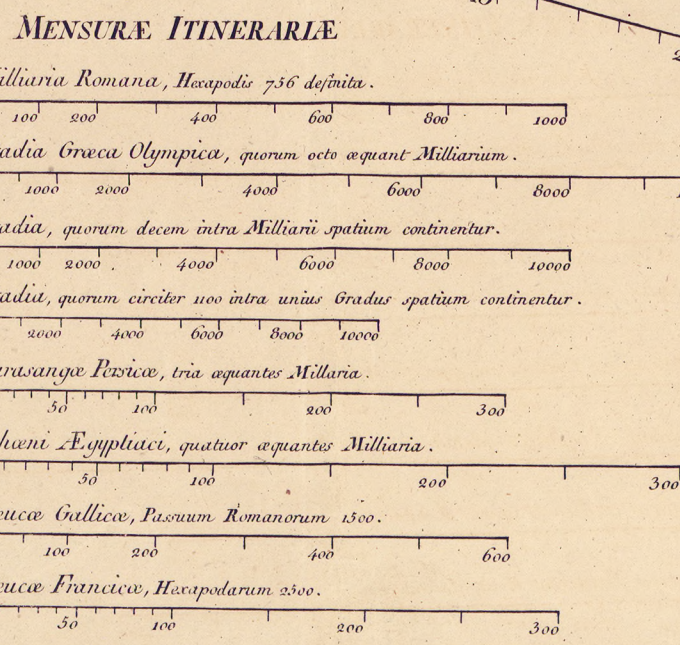 MENSURÆ ITINERARIÆ
illiaria Romana, Hexapodis 756 definita.
100 200 400 600 800 1000
adia Græca Olympica, quorum octo æquant Milliarium.
1000 2000 4000 6000 8000
adia, quorum decem intra Milliarii spatium continentur.
1000 2000 4000 6000 8000 10000
adia, quorum circiter 1100 intra unius Gradus spatium continentur.
2000 4000 6000 8000 10000
arasangæ Persicæ, tria æquantes Millaria.
50 100 200 300
hœni Ægyptiaci, quatuor æquantes Milliaria.
50 100 200 300
eucæ Gallicæ, Passuum Romanorum 1500.
100 200 400 600
eucæ Francicæ, Hexapodarum 2500.
50 100 200 300